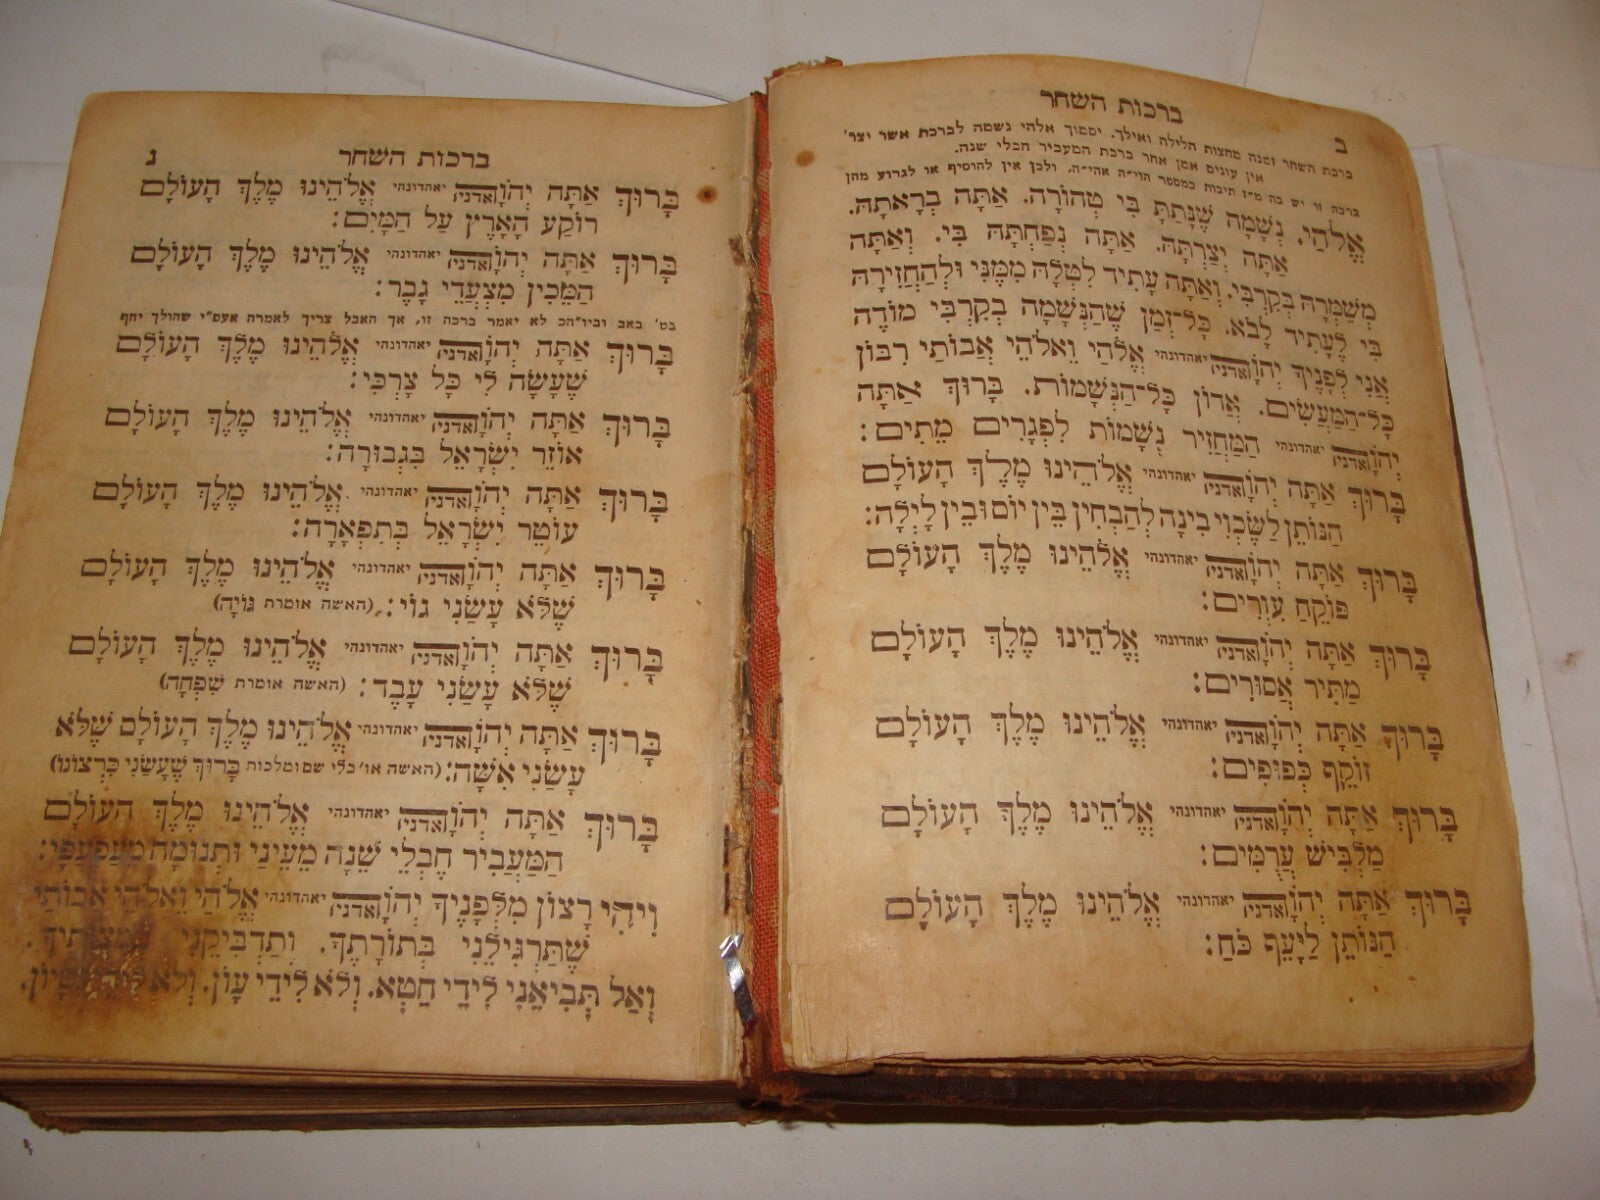 ב
ברכות השחר
ברכת השחר זמנה מחצות הלילה ואילך. יסמוך אלהי נשמה לברכת אשר יצר'
אין עונים אמן אחר ברכת המעביר חבלי שנה.
ברכה זו יש בה מ"ז תיבות כמספר הוי"ה אהי"ה, ולכן אין להוסיף או לגרוע מהן
אֱלֹהַי, נְשָׁמָה שֶׁנָּתַתָּ בִּי טְהוֹרָה. אַתָּה בְרָאתָהּ.
אַתָּה יְצַרְתָּהּ. אַתָּה נְפַחְתָּהּ בִּי. וְאַתָּה
מְשַׁמְּרָהּ בְּקִרְבִּי. וְאַתָּה עָתִיד לִטְּלָהּ מִמֶּנִּי וּלְהַחֲזִירָהּ
בִּי לֶעָתִיד לָבֹא. כָּל־זְמַן שֶׁהַנְּשָׁמָה בְקִרְבִּי מוֹדֶה
אֲנִי לְפָנֶיךָ יְהֹוָה אדניה יאהדונהי אֱלֹהַי וֵאלֹהֵי אֲבוֹתַי רִבּוֹן
כָּל־הַמַּעֲשִׂים. אֲדוֹן כָּל־הַנְּשָׁמוֹת. בָּרוּךְ אַתָּה
יְהֹוָה אדניה יאהדונהי הַמַּחֲזִיר נְשָׁמוֹת לִפְגָרִים מֵתִים:
בָּרוּךְ אַתָּה יְהֹוָה אדניה יאהדונהי אֱלֹהֵינוּ מֶלֶךְ הָעוֹלָם
הַנּוֹתֵן לַשֶּׂכְוִי בִינָה לְהַבְחִין בֵּין יוֹם וּבֵין לָיְלָה:
בָּרוּךְ אַתָּה יְהֹוָה אדניה יאהדונהי אֱלֹהֵינוּ מֶלֶךְ הָעוֹלָם
פּוֹקֵחַ עִוְרִים:
בָּרוּךְ אַתָּה יְהֹוָה אדניה יאהדונהי אֱלֹהֵינוּ מֶלֶךְ הָעוֹלָם
מַתִּיר אֲסוּרִים:
בָּרוּךְ אַתָּה יְהֹוָה אדניה יאהדונהי אֱלֹהֵינוּ מֶלֶךְ הָעוֹלָם
זוֹקֵף כְּפוּפִים:
בָּרוּךְ אַתָּה יְהֹוָה אדניה יאהדונהי אֱלֹהֵינוּ מֶלֶךְ הָעוֹלָם
מַלְבִּישׁ עֲרֻמִּים:
בָּרוּךְ אַתָּה יְהֹוָה אדניה יאהדונהי אֱלֹהֵינוּ מֶלֶךְ הָעוֹלָם
הַנּוֹתֵן לַיָּעֵף כֹּחַ:
ברכות השחר
ג
בָּרוּךְ אַתָּה יְהֹוָה אדניה יאהדונהי אֱלֹהֵינוּ מֶלֶךְ הָעוֹלָם
רוֹקַע הָאָרֶץ עַל הַמָּיִם:
בָּרוּךְ אַתָּה יְהֹוָה אדניה יאהדונהי אֱלֹהֵינוּ מֶלֶךְ הָעוֹלָם
הַמֵּכִין מִצְעֲדֵי גָבֶר:
בט' באב וביוה"כ לא יאמר ברכה זו, אך האבל צריך לאמרה אעפ"י שהולך יחף
בָּרוּךְ אַתָּה יְהֹוָה אדניה יאהדונהי אֱלֹהֵינוּ מֶלֶךְ הָעוֹלָם
שֶׁעָשָׂה לִי כָּל צָרְכִּי:
בָּרוּךְ אַתָּה יְהֹוָה אדניה יאהדונהי אֱלֹהֵינוּ מֶלֶךְ הָעוֹלָם
אוֹזֵר יִשְׂרָאֵל בִּגְבוּרָה:
בָּרוּךְ אַתָּה יְהֹוָה אדניה יאהדונהי אֱלֹהֵינוּ מֶלֶךְ הָעוֹלָם
עוֹטֵר יִשְׂרָאֵל בְּתִפְאָרָה:
בָּרוּךְ אַתָּה יְהֹוָה אדניה יאהדונהי אֱלֹהֵינוּ מֶלֶךְ הָעוֹלָם
שֶׁלֹּא עָשַׂנִי גוֹי: (האשה אומרת גּוֹיָה)
בָּרוּךְ אַתָּה יְהֹוָה אדניה יאהדונהי אֱלֹהֵינוּ מֶלֶךְ הָעוֹלָם
שֶׁלֹּא עָשַׂנִי עָבֶד: (האשה אומרת שִׁפְחָה)
בָּרוּךְ אַתָּה יְהֹוָה אדניה יאהדונהי אֱלֹהֵינוּ מֶלֶךְ הָעוֹלָם שֶׁלֹּא
עָשַׂנִי אִשָּׁה: (האשה או' בלי שם ומלכות בָּרוּךְ שֶׁעָשַׂנִי כִּרְצוֹנוֹ)
בָּרוּךְ אַתָּה יְהֹוָה אדניה יאהדונהי אֱלֹהֵינוּ מֶלֶךְ הָעוֹלָם
הַמַּעֲבִיר חֶבְלֵי שֵׁנָה מֵעֵינַי וּתְנוּמָה מֵעַפְעַפָּי:
וִיהִי רָצוֹן מִלְּפָנֶיךָ יְהֹוָה אדניה יאהדונהי אֱלֹהַי וֵאלֹהֵי אֲבוֹתַי
שֶׁתַּרְגִּילֵנִי בְּתוֹרָתֶךָ. וְתַדְבִּיקֵנִי בְּמִצְוֹתֶיךָ.
וְאַל תְּבִיאֵנִי לִידֵי חֵטְא. וְלֹא לִידֵי עָוֹן. וְלֹא לִידֵי נִסָּיוֹן.